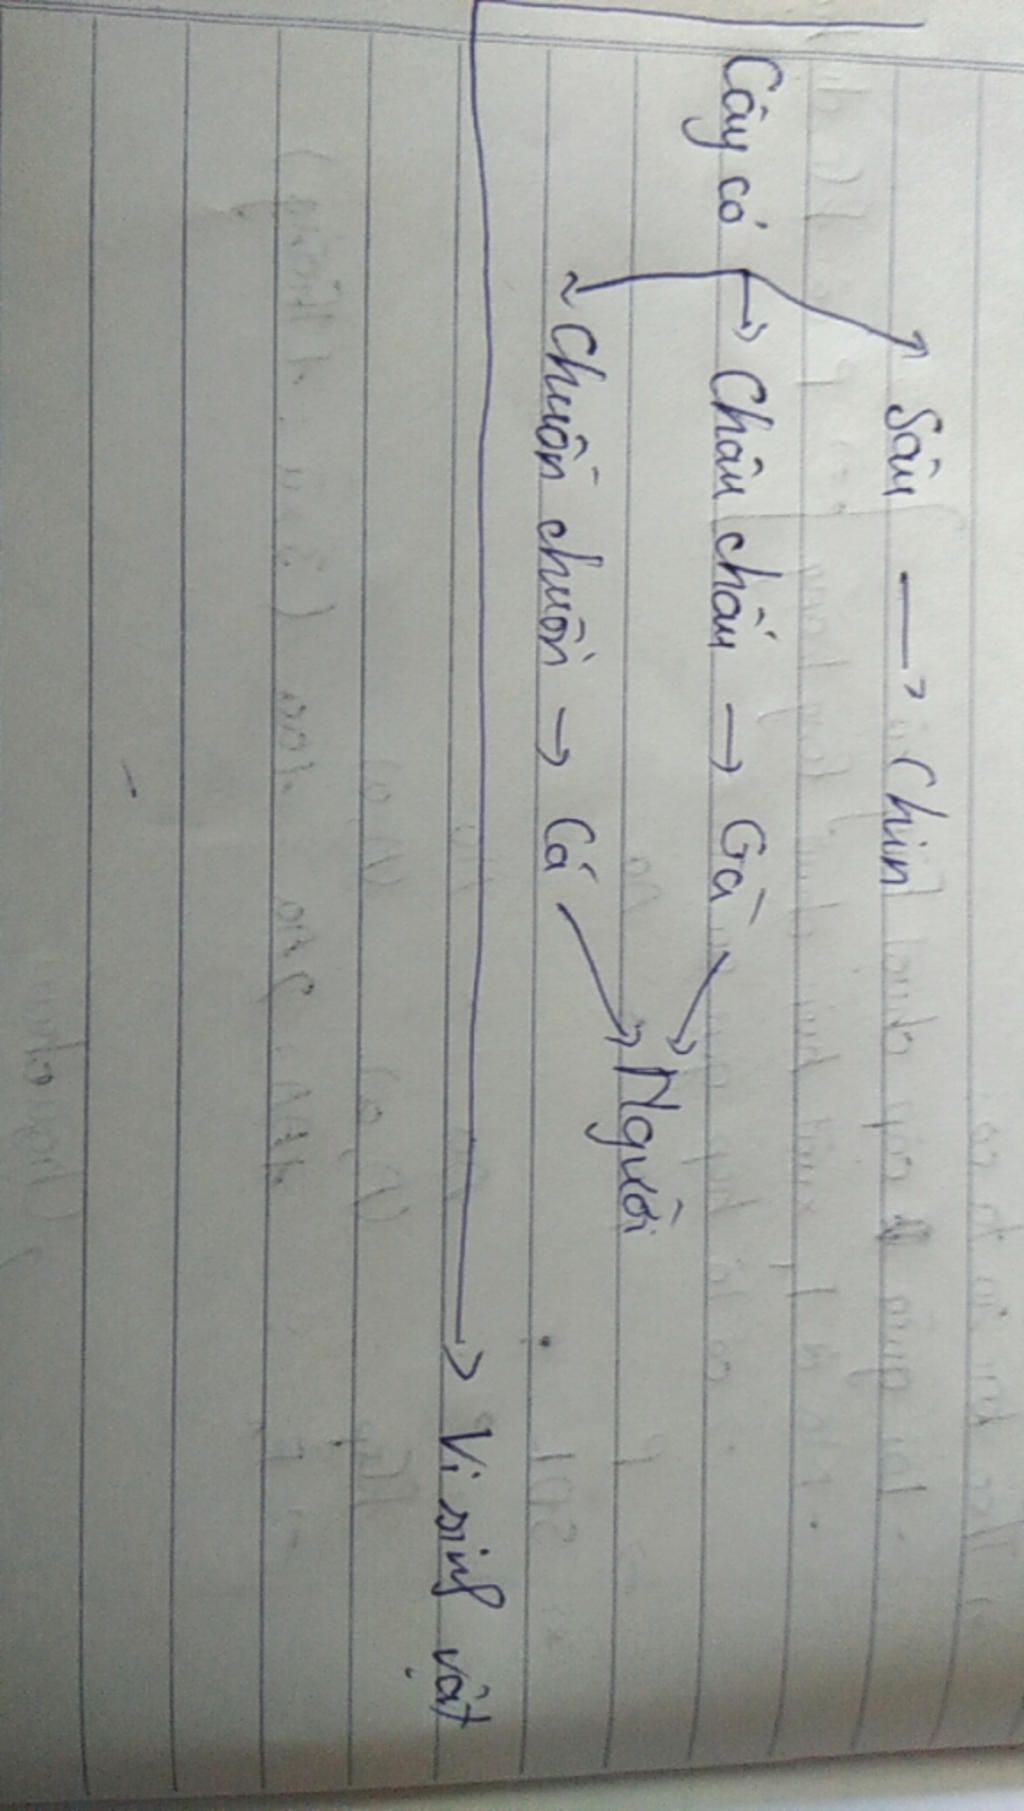 Sâu → Chim
Cây cỏ → Châu chấu → Gà → Người
Chuồn chuồn → Cá
→ Vi sinh vật